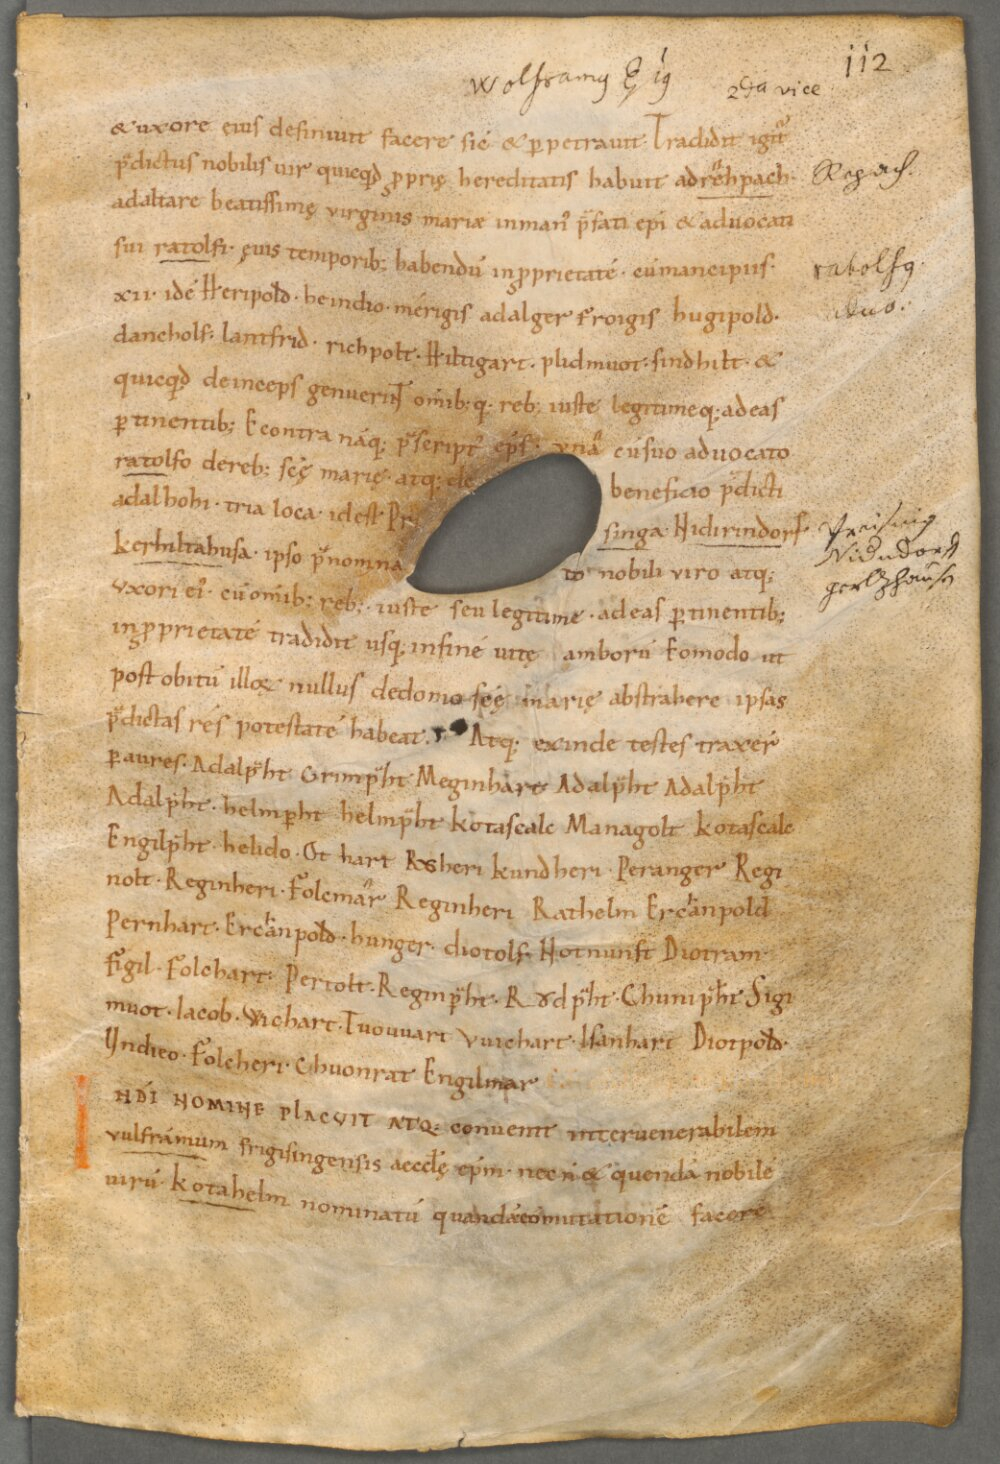 Wolframus Eps 19
2da vice
112
& uxore eius definiuit facere sic & ppetrauit. Tradidit igit
p̄dictus nobilis uir quicqd pprię hereditatis habuit adrêhpach.
Repach.
adaltare beatissimę virginis mariæ inman p̄fati epi & aduocati
sui ratolfi. ęuis temporib; habendū inpprietatē. cūmancipiis.
ratolfus
xii. idē Heripold. heindio. merigis adalger Eroigis hugipold.
duo.
dancholf. lantfrid. richpolt. Hiltigart. plidmuot. sindhilt. &
quicqd deinceps genuerint omib; q; reb; iuste legitimeq; adeas
ptinentib; Econtra nāq; p̄script eps; vna cūsuo aduocato
ratolfo dereb; scę marię. atq; de beneficio p̄dicti
adalhohi. tria loca. idest Pri singa. Hidirindorf
Preising
Nidndorff
kerhiltahusa. ipso p̄nomina to nobili viro atq;
gerlzhausn
vxori ei. cūomib; reb; iuste seu legitime. adeas ptinentib;
inpprietatē tradidit usq; infinē uitę amborū Eomodo ut
post obitū illoꝝ nullus dedomo scę marię abstrahere ipsas
p̄dictas res potestatē habeat. Atq; exinde testes traxer
paures. Adalpht Crimpht Meginhart Adalpht Adalpht
Adalpht. helmpht helmpht kotascalc Managolt kotascalc
Engilpht. helido. Ot hart Roheri kundheri. Peranger Regi
nolt. Reginheri. Folcmar Reginheri Rathelm Ercanpold
Pernhart. Ercanpold. hunger. diotolf. Hotnunft Diotram
Figil. Folchart. Pertolt. Reginpht. Rodpht. Chunipht Sigi
muot. Iacob. Vvichart. Tuouuart Vuichart. Isanhart Diotpold.
Vndieo. Folcheri. Chuonrat Engilmar
INDĪ NOMINE PLACVIT ATQ; conuenit interuenerabilem
vulframum frigisingensis aecclę epm. nec n & quendā nobilē
uirū kotahelm nominatū quandācōmutationē facere